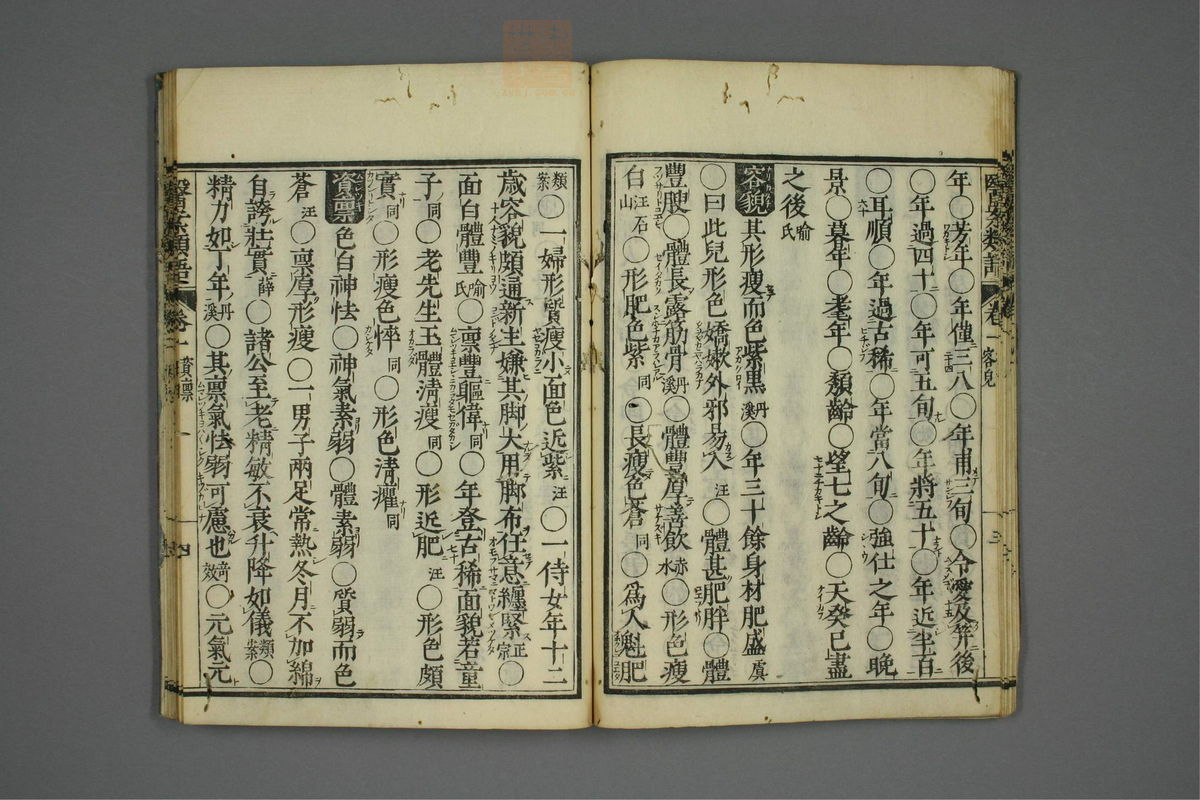 年○芳年○年僅三八○年甫三旬○令愛及笄後
○年過四十○年可五旬○年將五十○年近半百
○耳順○年過古稀○年當八旬○強仕之年○晚
景○暮年○耄年○頽齡○望七之齡○天癸已盡
之後喻氏
容貌 其形瘦而色紫黑丹溪○年三十餘身材肥盛虞
○曰此兒形色嬌嫩外邪易入汪○體甚肥胖○體
豐腴○體長露筋骨丹溪○體豐厚善飲赤水○形色瘦
白汪石山○形肥色紫同○長瘦色蒼同○爲人魁肥
類案○一婦形質瘦小面色近紫汪○一侍女年十二
歲容貌頗通新主嫌其脚大用脚布任意纏緊正宗○
面白體豐喻氏○禀豐軀偉同○年登古稀面貌若童
子同○老先生玉體清瘦同○形近肥汪○形色頗
實同○形瘦色悴同○形色清癯同
資禀 色白神怯○神氣素弱○體素弱○質弱而色
蒼汪○禀厚形瘦○一男子兩足常熱冬月不加綿
自誇壯實薛○諸公至老精敏不衰升降如儀類案○
精力如丁年丹溪○其禀氣怯弱可慮也奇效○元氣元
醫案類語 卷一 容貌 三
醫案類語 卷一 資禀 四